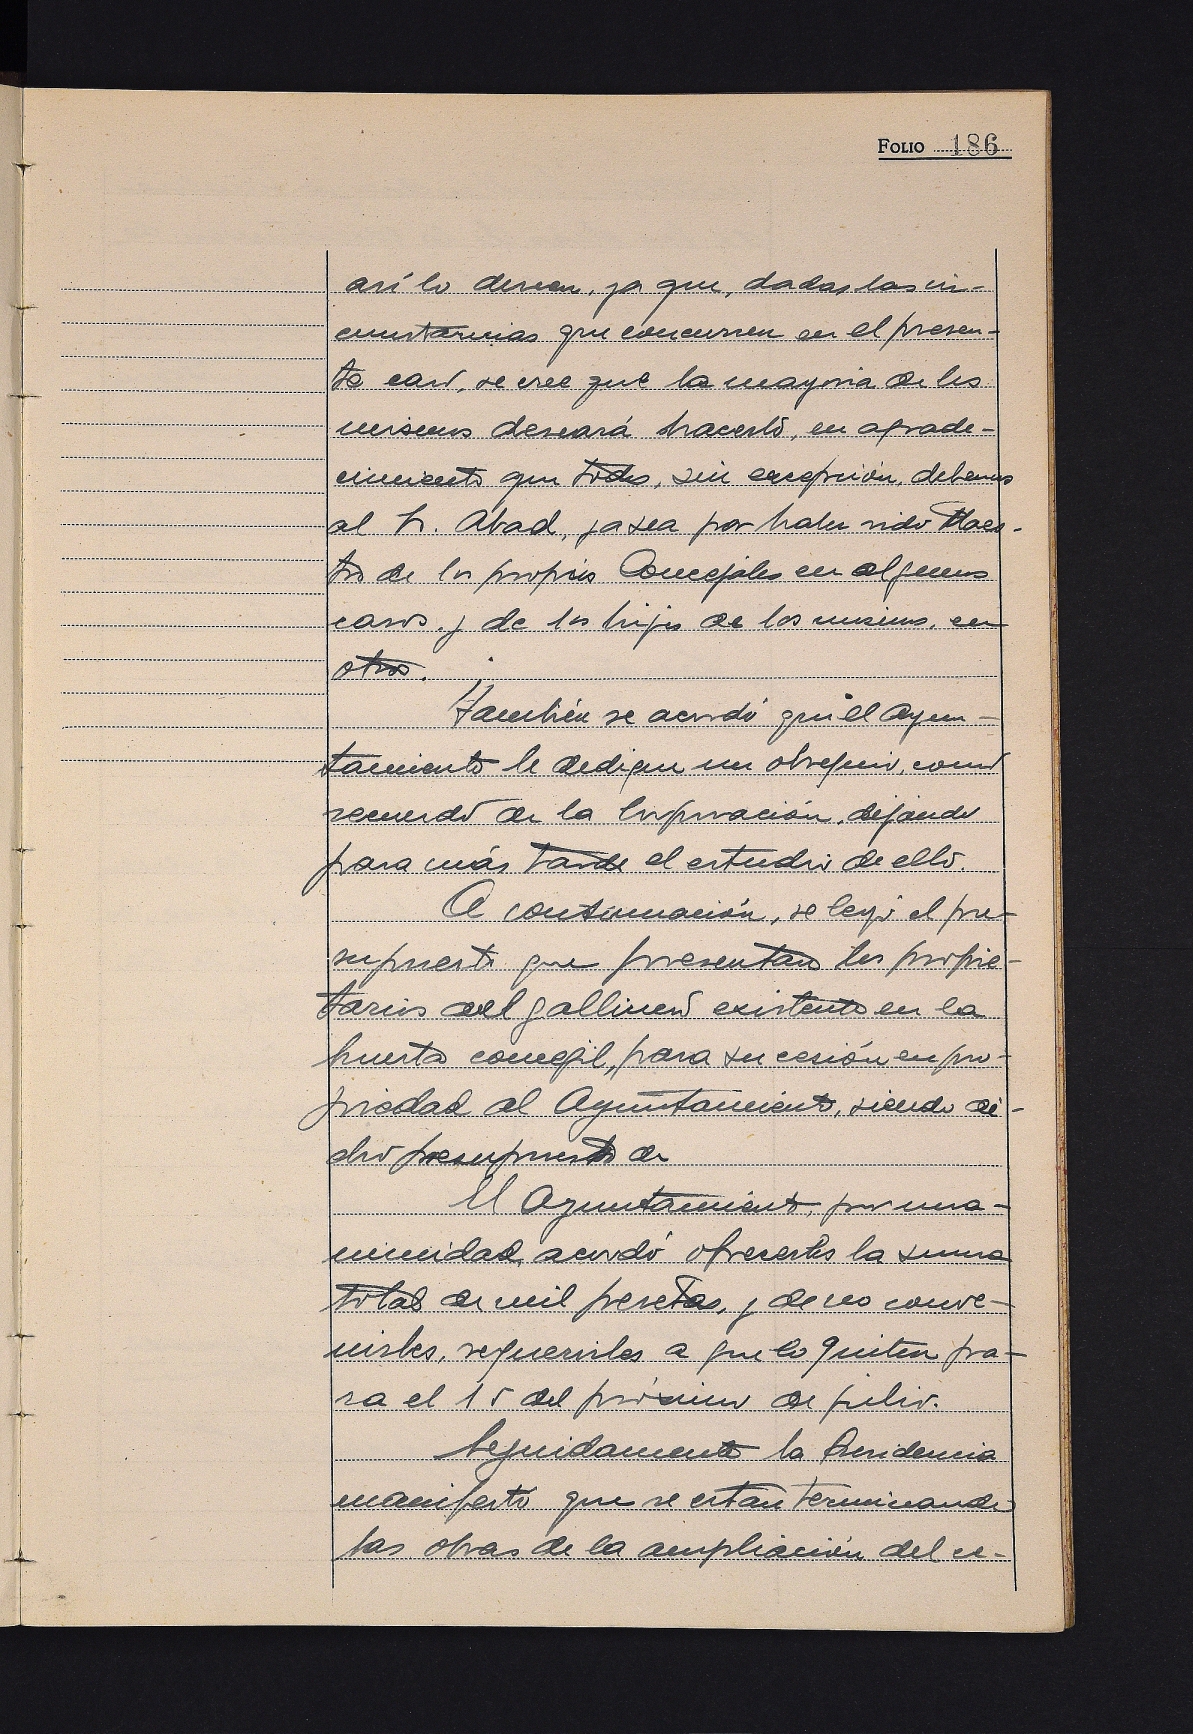 FOLIO 186
así lo deseen, ya que, dadas las cir-
cunstancias que concurren en el presen-
te caso, se cree que la mayoria de los
mismos deseará hacerlo, en agrade-
cimiento que todos, sin excepción, debemos
al Sr. Abad, ya sea por haber sido Maes-
tro de los propios Concejales en algunos
casos, y de los hijos de los mismos, en
otros.
También se acordó que el Ayun-
tamiento le dedique un obsequio, como
recuerdo de la Corporación, dejando
para más tarde el estudio de ello.
A continuación, se leyó el pre-
supuesto que presentan los propie-
tarios del gallinero existente en la
huerta concejil, para su cesión en pro-
piedad al Ayuntamiento, siendo di-
cho presupuesto de
El Ayuntamiento, por una-
nimidad, acordó ofrecerles la suma
total de mil pesetas, y de no conve-
nirles, requerirles a que lo quiten pa-
ra el 15 del próximo de julio.
Seguidamente la Presidencia
manifestó que se estan terminando
las obras de la ampliación del ce-